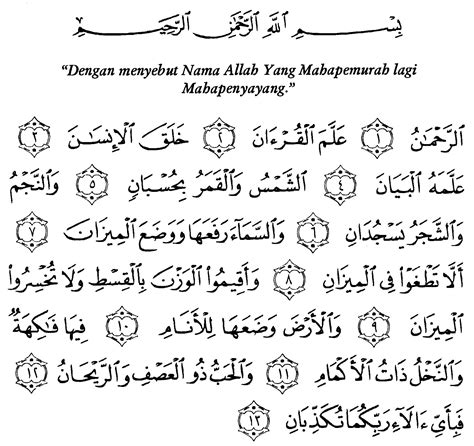 بِسْمِ اللَّهِ الرَّحْمَٰنِ الرَّحِيمِ
“Dengan menyebut Nama Allah Yang Mahapemurah lagi
Mahapenyayang.”
الرَّحْمَٰنُ ١ عَلَّمَ الْقُرْءَانَ ٢ خَلَقَ الْإِنسَٰنَ ٣
عَلَّمَهُ الْبَيَانَ ٤ الشَّمْسُ وَالْقَمَرُ بِحُسْبَانٍ ٥ وَالنَّجْمُ
وَالشَّجَرُ يَسْجُدَانِ ٦ وَالسَّمَآءَ رَفَعَهَا وَوَضَعَ الْمِيزَانَ ٧
أَلَّا تَطْغَوْا۟ فِى الْمِيزَانِ ٨ وَأَقِيمُوا۟ الْوَزْنَ بِالْقِسْطِ وَلَا تُخْسِرُوا۟
الْمِيزَانَ ٩ وَالْأَرْضَ وَضَعَهَا لِلْأَنَامِ ١٠ فِيهَا فَٰكِهَةٌ
وَالنَّخْلُ ذَاتُ الْأَكْمَامِ ١١ وَالْحَبُّ ذُو الْعَصْفِ وَالرَّيْحَانُ ١٢
فَبِأَىِّ ءَالَآءِ رَبِّكُمَا تُكَذِّبَانِ ١٣